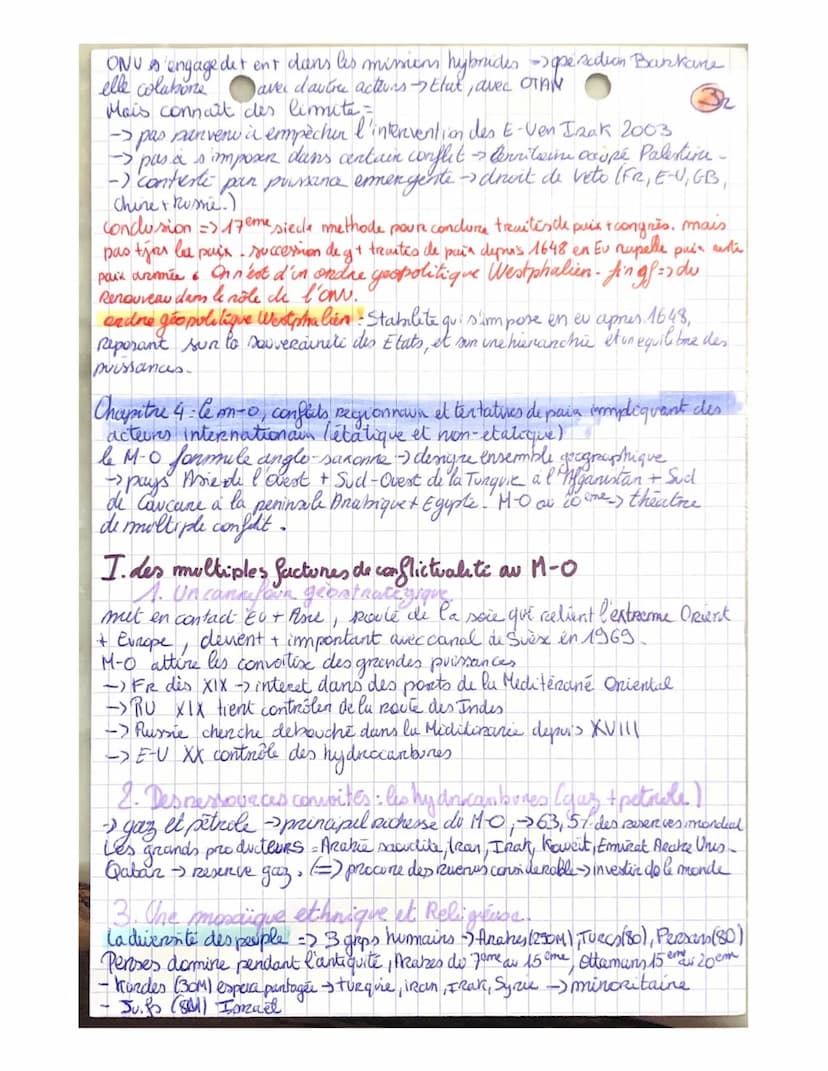 ONU s'engagedet ent dans les missions hybrides -> opération Barkane
elle colabore avec d'autre acteurs -> Etat, avec OTAN
32
Mais connaît des limite =
-> pas parvenu à empêcher l'intervention des E-U en Irak 2003
-> pas à s'imposer dans certain conflit -> territoire occupé Palestine -
-> contesté par puissance emergente -> droit de veto (FR, E-U, GB,
Chine + Russie.)
Conclusion => 17eme siecle methode pour conclure traités de paix + congrès. mais
pas tjrs la paix. succession de g+ traités de paix depuis 1648 en Eu rapelle paix
paix armée. On n'est d'un ordre geopolitique Westphalien - => du
Renouveau dans le rôle de l'ONU.
ordre géopolitique Westphalien : Stabilité qui s'impose en eu apres 1648,
reposant sur la souveraineté des Etats, et sur une hierarchie et un equilibre des
puissances.
Chapitre 4 : le m-o, conflits regionnaux et tentatives de paix immpliquant des
acteurs internationaux (étatique et non-etatique)
le M-O formule anglo-saxonne -> designe ensemble geographique
-> pays Asie de l'Ouest + Sud-Ouest de la Turquie à l'Afganistan + Sud
de Caucase à la peninsule Arabique + Egypte. M-O au 20eme -> théâtre
de multiple conflit.
I. des multiples factures de conflictualité au M-O
1. Un carrefour géostratégique
met en contact Eu + Asie, route de la soie qui relient l'extreme Orient
+ Europe, devient + important avec canal de Suèse en 1969.
M-O attire les convoitise des grandes puissances
-> FR dès XIX -> interet dans des ports de la Mediterané Oriental
-> RU XIX tient contrôler de la route des Indes
-> Russie cherche debouché dans la Méditeranie depuis XVIII
-> E-U XX contrôle des hydrocarbures
2. Des ressources convoités : les hydrocarbures (gaz + petrole)
-> gaz et pétrole -> principal richesse du M-O, -> 63,5% des reserves mondial
Les grands producteurs = Arabie saoudite, Iran, Irak, Koweit, Emirat Arabe Unis -
Qatar -> reserve gaz. (=>) procure des revenus considerable -> investir de le monde
3. Une mosaïque ethnique et Religieuse.
La diversité des peuple => 3 grps humains -> Arabes (250M), Turcs (80), Persans (80)
Perses domine pendant l'antiquité, Arabes du 7eme au 15eme, Ottomans 15eme au 20eme
- Kurdes (30M) espera partagée -> turquie, iran, Irak, Syrie -> minoritaire
- Juifs (8M) Israël